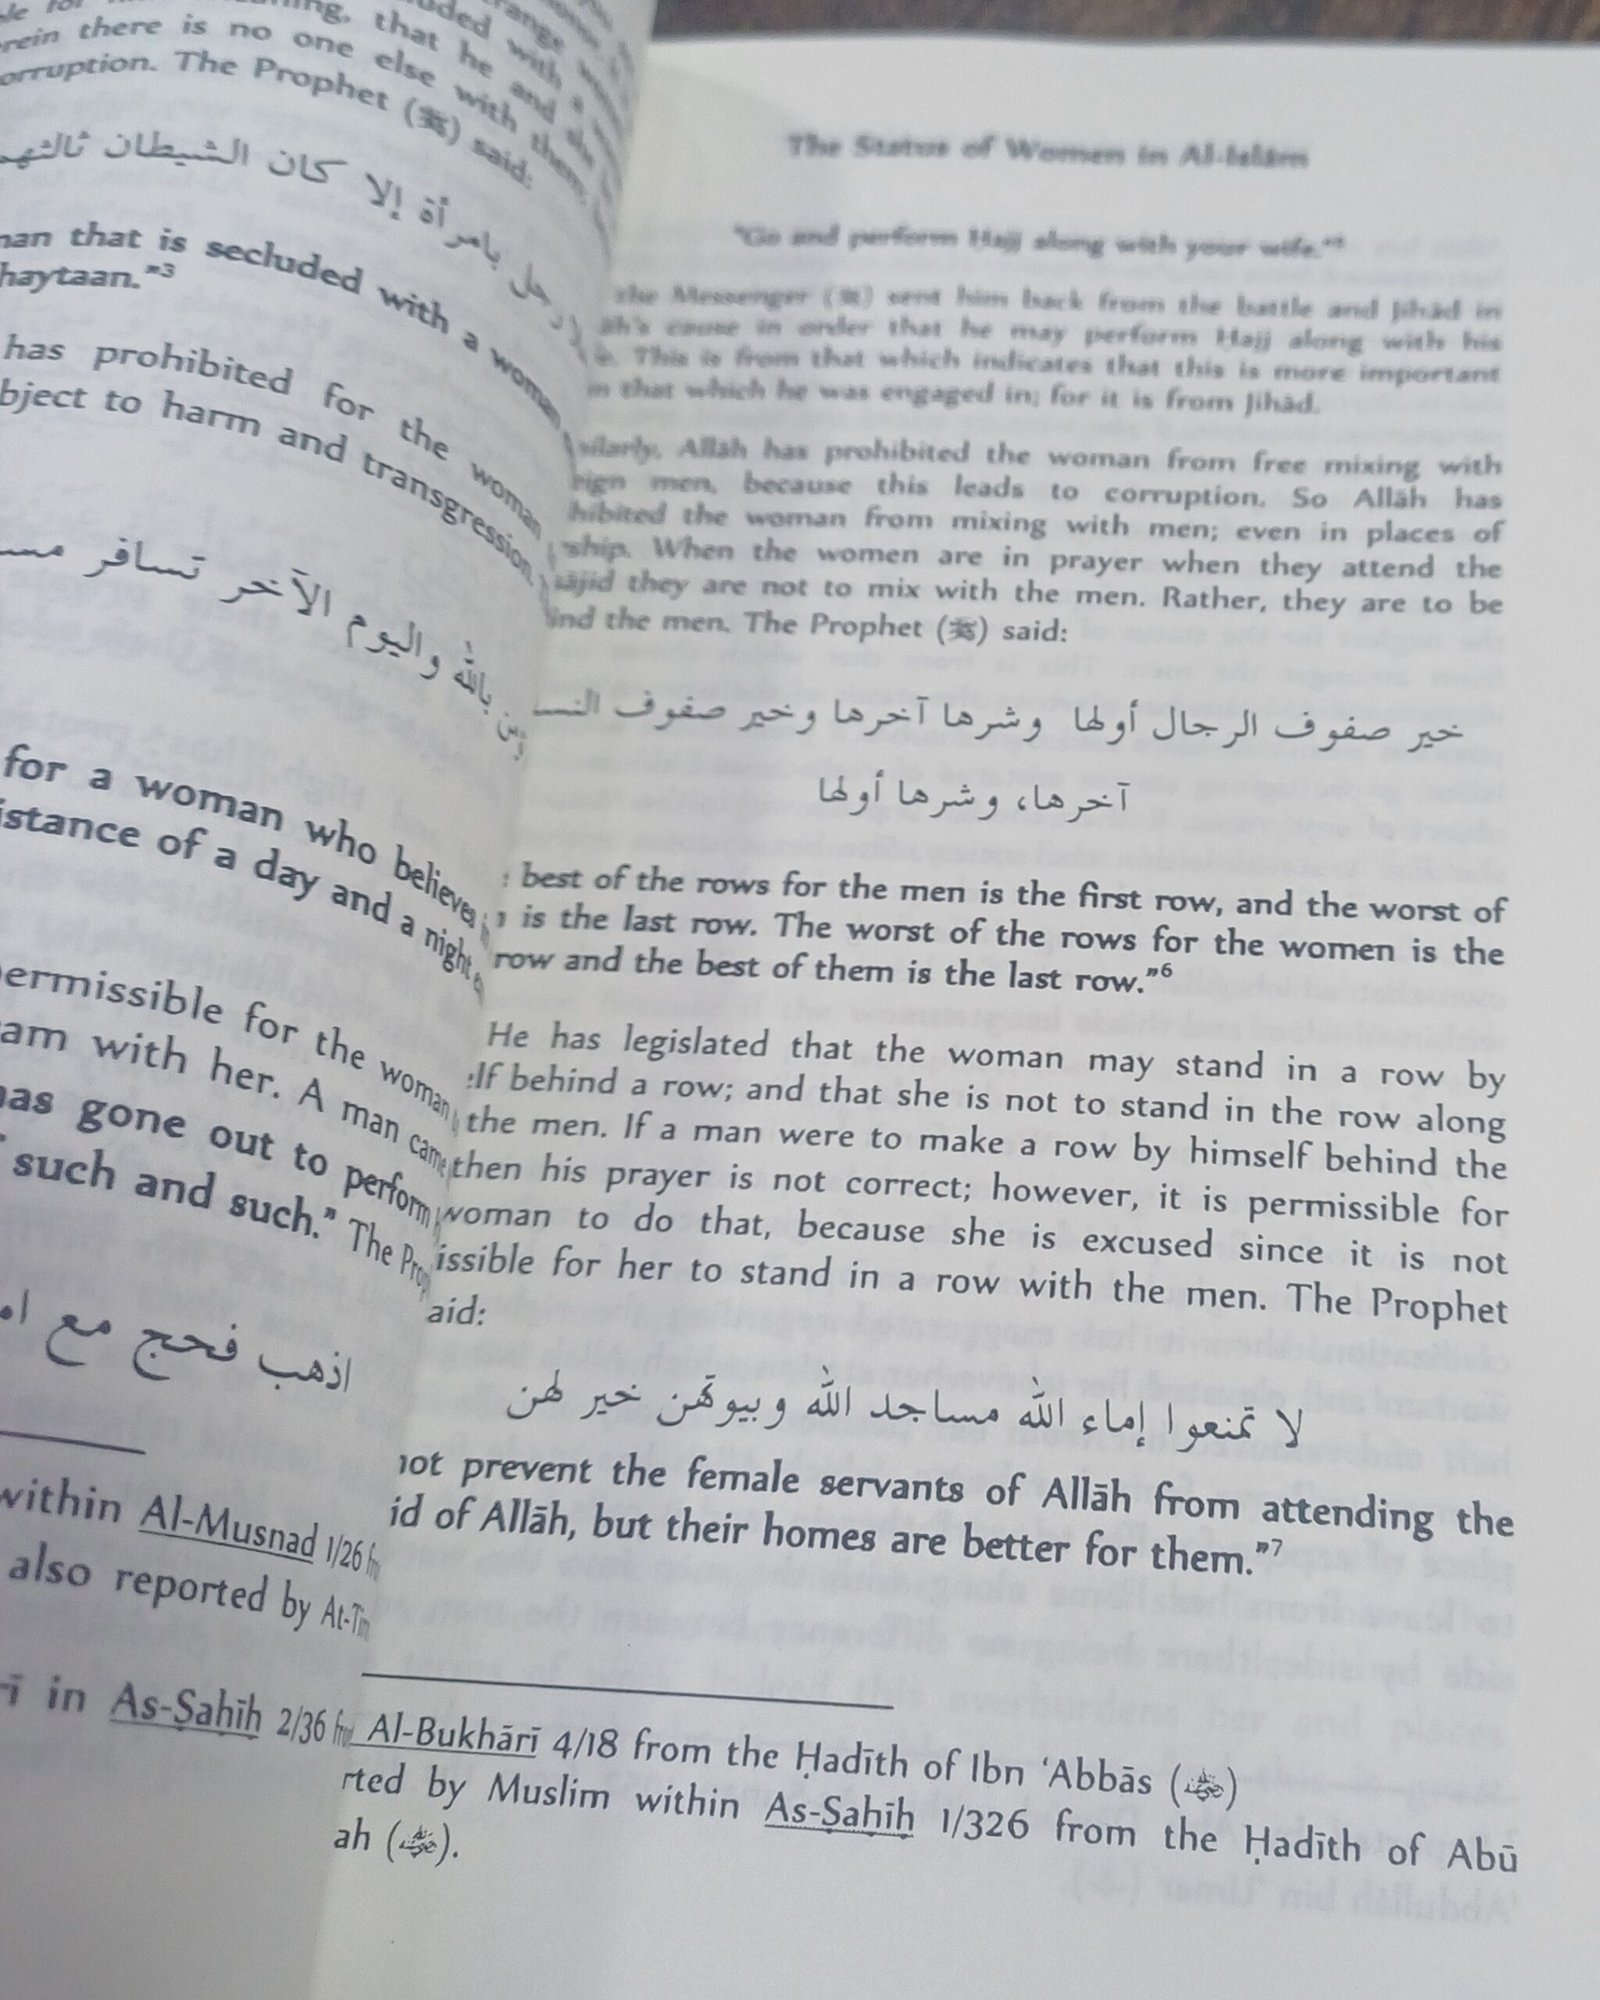 there is no one else with them
corruption. The Prophet (ﷺ) said:
بامرأة إلا كان الشيطان ثالثهم
that is secluded with a woman
haytaan."3
has prohibited for the woman
to harm and transgression
بالله واليوم الآخر تسافر
for a woman who believes
distance of a day and a night
permissible for the woman
with her. A man came
has gone out to perform
such and such." The
اذهب فحج مع
within Al-Musnad 1/26
also reported by
in As-Ṣaḥīḥ 2/36
The Status of Women in Al-Islām
"Go and perform Hajj along with your wife."
the Messenger (ﷺ) sent him back from the battle and Jihād in
cause in order that he may perform Hajj along with his
This is from that which indicates that this is more important
that which he was engaged in; for it is from Jihād.
Allāh has prohibited the woman from free mixing with
men, because this leads to corruption. So Allāh has
the woman from mixing with men; even in places of
When the women are in prayer when they attend the
they are not to mix with the men. Rather, they are to be
the men. The Prophet (ﷺ) said:
خير صفوف الرجال أولها وشرها آخرها وخير صفوف
آخرها، وشرها أولها
best of the rows for the men is the first row, and the worst of
is the last row. The worst of the rows for the women is the
row and the best of them is the last row."6
He has legislated that the woman may stand in a row by
behind a row; and that she is not to stand in the row along
the men. If a man were to make a row by himself behind the
then his prayer is not correct; however, it is permissible for
woman to do that, because she is excused since it is not
issible for her to stand in a row with the men. The Prophet
aid:
لا تمنعوا إماء الله مساجد الله وبيوتهن خير لهن
not prevent the female servants of Allāh from attending the
id of Allāh, but their homes are better for them."7
Al-Bukhārī 4/18 from the Ḥadīth of Ibn ‘Abbās (رضي الله عنه)
rted by Muslim within As-Ṣaḥīḥ 1/326 from the Ḥadīth of Abū
ah (رضي الله عنه).